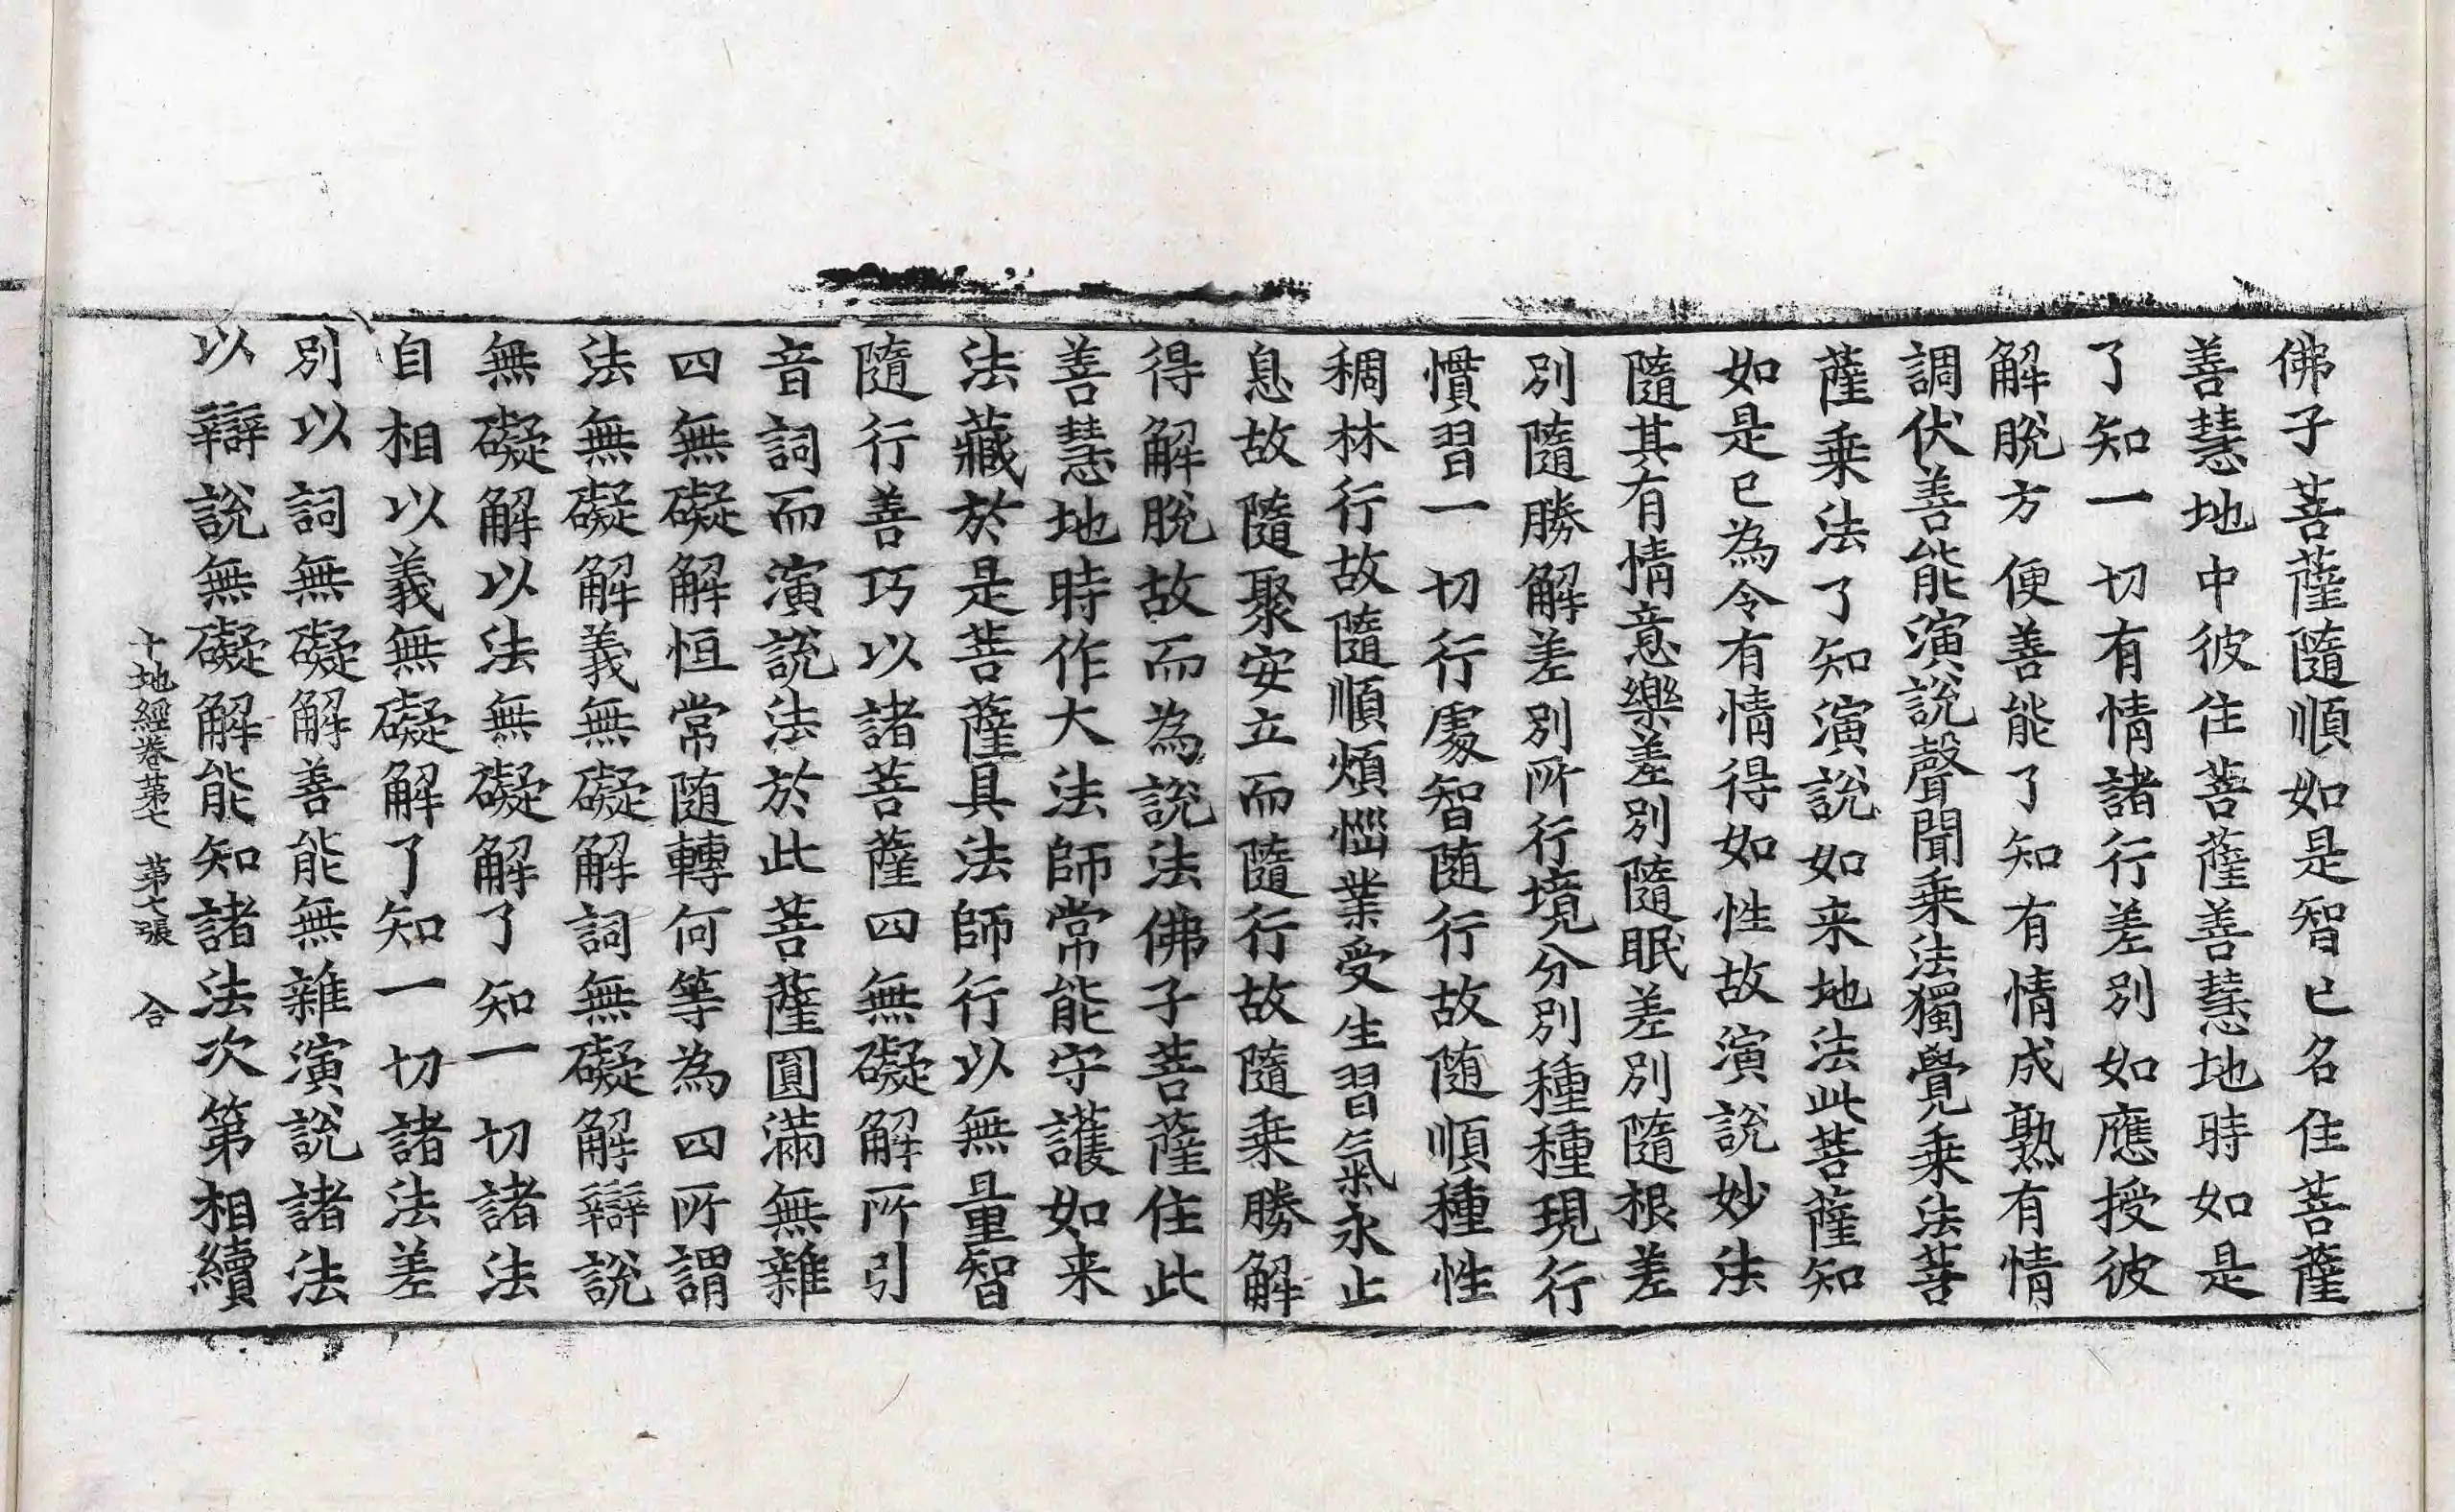 佛子菩薩隨順如是智已名住菩薩
善慧地中彼住菩薩善慧地時如是
了知一切有情諸行差別如應授彼
解脫方便善能了知有情成熟有情
調伏善能演說聲聞乘法獨覺乘法菩
薩乘法了知演說如来地法此菩薩知
如是已為令有情得如性故演說妙法
隨其有情意樂差別隨眠差別隨根差
別隨勝解差別所行境分別種種現行
慣習一切行處智随行故随順種性
稠林行故隨順煩惱業受生習氣永止
息故隨聚安立而隨行故隨乘勝解
得解脫故而為說法佛子菩薩住此
善慧地時作大法師常能守護如来
法藏於是菩薩具法師行以無量智
隨行善巧以諸菩薩四無礙解所引
音詞而演說法於此菩薩圓滿無雜
四無礙解恒常随轉何等為四所謂
法無礙解義無礙解詞無礙解辯說
無礙解以法無礙解了知一切諸法
自相以義無礙解了知一切諸法差
別以詞無礙解善能無雜演說諸法
以辯說無礙解能知諸法次第相續
十地經卷苐七 苐七張 合